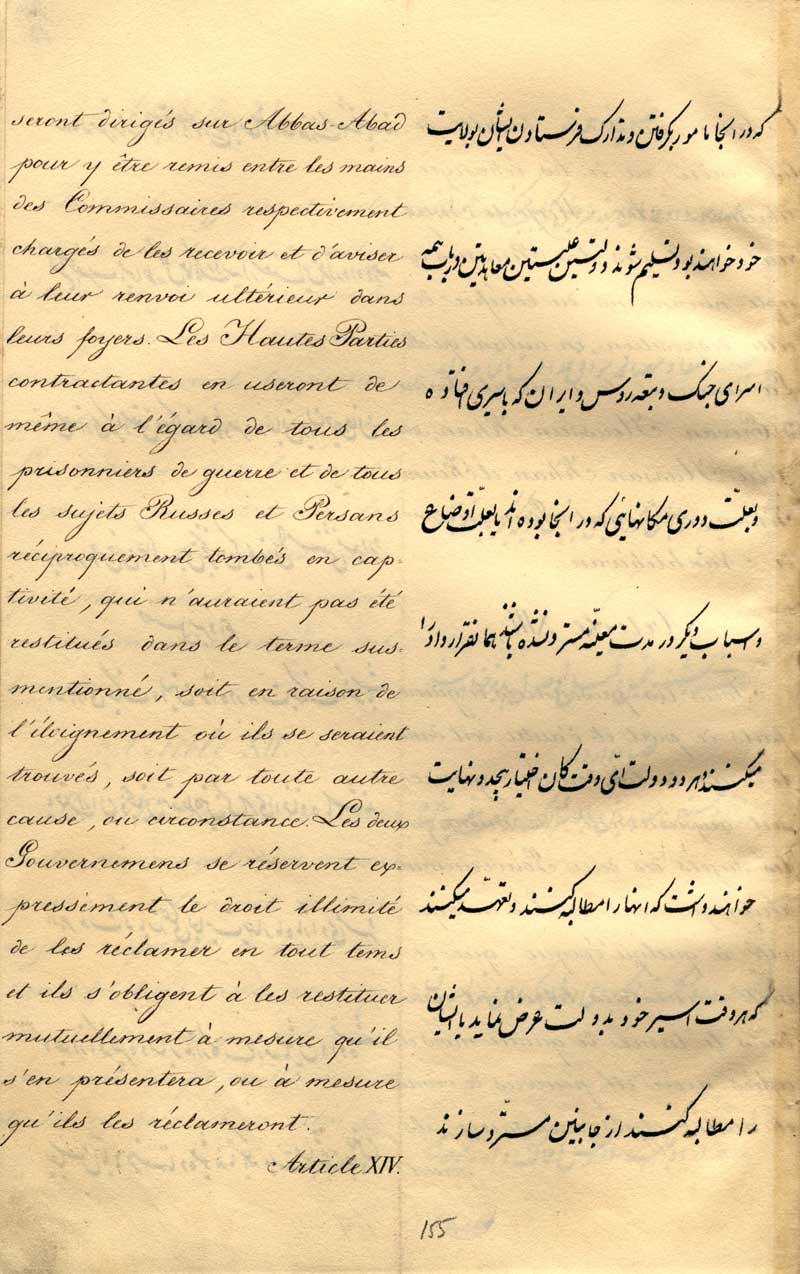 seront dirigés sur Abbas-Abad
pour y être remis entre les mains
des Commissaires respectivement
chargés de les recevoir et d'aviser
à leur renvoi ultérieur dans
leurs foyers. Les Hautes Parties
contractantes en useront de
même à l'égard de tous les
prisonniers de guerre et de tous
les sujets Russes et Persans
réciproquement tombés en cap-
tivité, qui n'auraient pas été
restitués dans le terme sus-
mentionné, soit en raison de
l'éloignement où ils se seraient
trouvés, soit par toute autre
cause, ou circonstance. Les deux
Gouvernemens se réservent ex-
pressément le droit illimité
de les réclamer en tout tems
et ils s'obligent à les restituer
mutuellement à mesure qu'il
s'en présentera, ou à mesure
qu'ils les réclameront.
Article XIV.
که در انجا مامور بگرفتن و تدارک فرستادن ایشان بولایت
خود خواهند بود تسلیم شوند دولتین علیتین معاهدتین در باب همه
اسرای جنک و تبعه روس و ایران که باسیری افتاده
و بعلت دوری مکانهایی که در انجا بوده اند یا بعلت اوضاع
و اسباب دیکر در مدت معینه مسترد نشده باشند همانقرارداد را
میکنند هر دو دولت ای وقت کان اختیار بیحد و نهایت
خواهند داشت که انها را مطالبه کنند و تعهد میکنند
که هر وقت اسیر خود بدولت عرض نماید یا ایشان
را مطالبه کنند از جانبین مسترد سازند
155